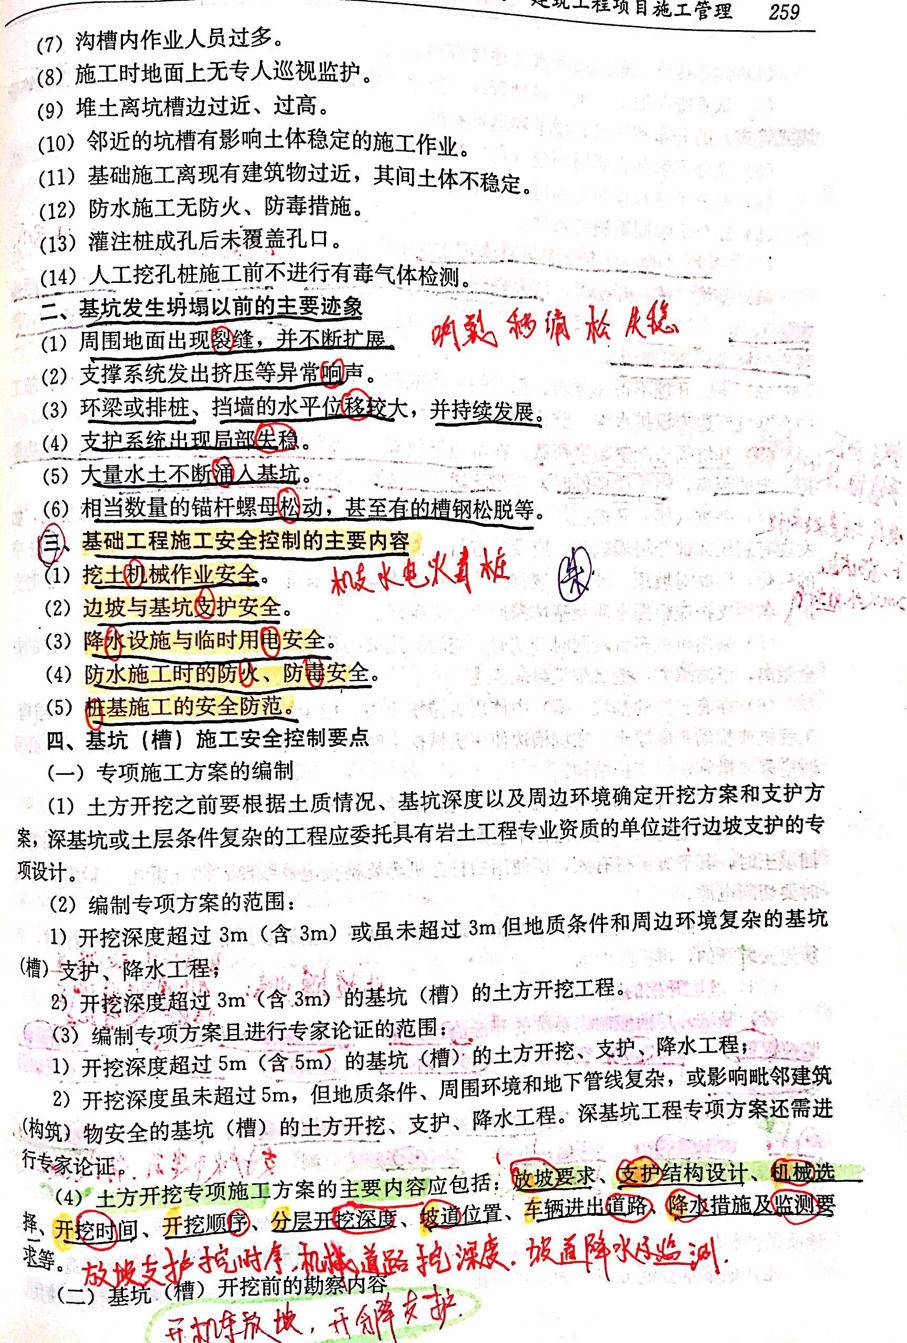 建筑工程项目施工管理 259
(7) 沟槽内作业人员过多。
(8) 施工时地面上无专人巡视监护。
(9) 堆土离坑槽边过近、过高。
(10) 邻近的坑槽有影响土体稳定的施工作业。
(11) 基础施工离现有建筑物过近，其间土体不稳定。
(12) 防水施工无防火、防毒措施。
(13) 灌注桩成孔后未覆盖孔口。
(14) 人工挖孔桩施工前不进行有毒气体检测。
二、基坑发生坍塌以前的主要迹象
(1) 周围地面出现裂缝，并不断扩展。
响裂移涌松失稳
(2) 支撑系统发出挤压等异常响声。
(3) 环梁或排桩、挡墙的水平位移较大，并持续发展。
(4) 支护系统出现局部失稳。
(5) 大量水土不断涌入基坑。
(6) 相当数量的锚杆螺母松动，甚至有的槽钢松脱等。
三、基础工程施工安全控制的主要内容
(1) 挖土机械作业安全。
机支水电火毒桩
(2) 边坡与基坑支护安全。
(3) 降水设施与临时用电安全。
(4) 防水施工时的防火、防毒安全。
(5) 桩基施工的安全防范。
四、基坑（槽）施工安全控制要点
（一）专项施工方案的编制
(1) 土方开挖之前要根据土质情况、基坑深度以及周边环境确定开挖方案和支护方
案，深基坑或土层条件复杂的工程应委托具有岩土工程专业资质的单位进行边坡支护的专
项设计。
(2) 编制专项方案的范围：
1) 开挖深度超过 3m（含 3m）或虽未超过 3m 但地质条件和周边环境复杂的基坑
（槽）支护、降水工程；
2) 开挖深度超过 3m（含 3m）的基坑（槽）的土方开挖工程。
(3) 编制专项方案且进行专家论证的范围：
1) 开挖深度超过 5m（含 5m）的基坑（槽）的土方开挖、支护、降水工程；
2) 开挖深度虽未超过 5m，但地质条件、周围环境和地下管线复杂，或影响毗邻建筑
（构筑）物安全的基坑（槽）的土方开挖、支护、降水工程。深基坑工程专项方案还需进
行专家论证。
(4) 土方开挖专项施工方案的主要内容应包括：放坡要求、支护结构设计、机械选
择、开挖时间、开挖顺序、分层开挖深度、坡道位置、车辆进出道路、降水措施及监测要
求等。
放坡支护挖时序，机械道路挖深度，坡道降水与监测.
（二）基坑（槽）开挖前的勘察内容